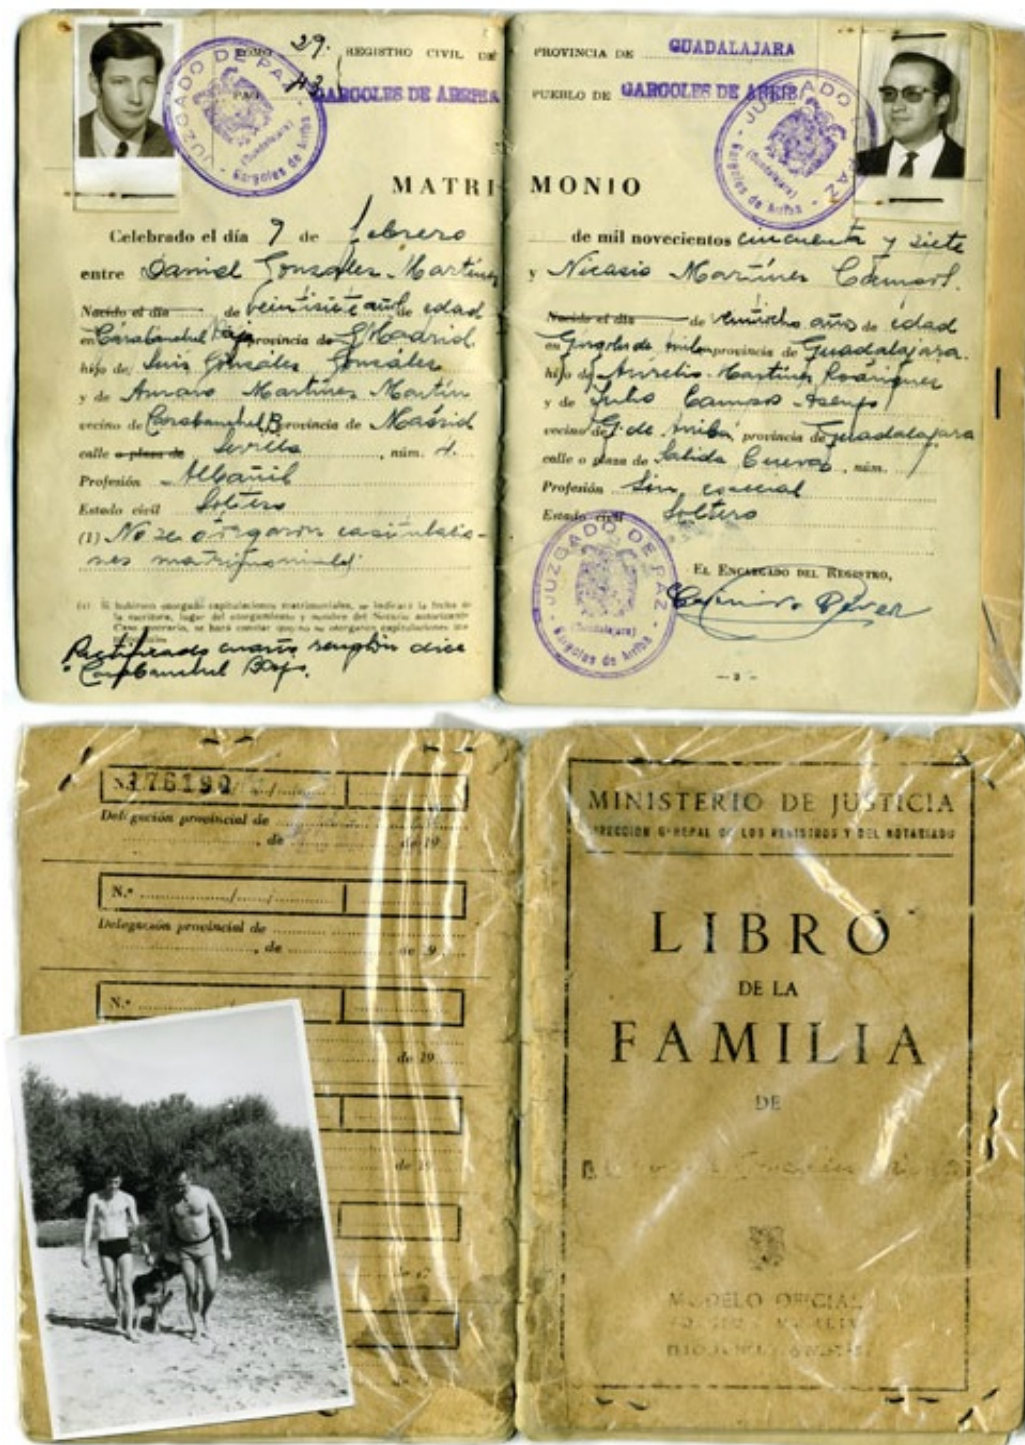 TOMO 29. REGISTRO CIVIL DE
PAG. 43
GARGOLES DE ARRIBA
JUZGADO DE PAZ
(Guadalajara)
Gárgoles de Arriba
MATRI
Celebrado el día 7 de febrero
entre Daniel González Martínez
Nacido el día de veintisiete años de edad
en Carabanchel Bajo provincia de Madrid.
hijo de Luis González González
y de Amparo Martínez Martín
vecino de Carabanchel B. provincia de Madrid
calle o plaza de Sevilla, núm. 4.
Profesión Albañil
Estado civil Soltero
(1) No se otorgaron capitulacio-
nes matrimoniales
(1) Si hubiesen otorgado capitulaciones matrimoniales, se indicará la fecha de
la escritura, lugar del otorgamiento y nombre del Notario autorizante.
Caso contrario, se hará constar que no se otorgaron capitulaciones
Rectificado cuarto renglón dice
"Carabanchel Bajo.
PROVINCIA DE GUADALAJARA
PUEBLO DE GARGOLES DE ARRIBA
JUZGADO DE PAZ
(Guadalajara)
Gárgoles de Arriba
MONIO
de mil novecientos cincuenta y siete
y Nicasio Martínez
Nacido el día de veintiocho años de edad
en Gárgoles de Arriba provincia de Guadalajara.
hijo de Aurelio Martínez Rodríguez
y de Julia Campos Asenjo
vecino de G. de Arriba provincia de Guadalajara
calle o plaza de Salida Cuevas, núm.
Profesión Sin especial
Estado civil Soltero
JUZGADO DE PAZ
(Guadalajara)
Gárgoles de Arriba
EL ENCARGADO DEL REGISTRO,
— 3 —
N.º 176190
Delegación provincial de
, de de 19
N.º
Delegación provincial de
, de de 19
N.º
de 19
de 19
MINISTERIO DE JUSTICIA
DIRECCION GENERAL DE LOS REGISTROS Y DEL NOTARIADO
LIBRO
DE LA
FAMILIA
DE
MODELO OFICIAL